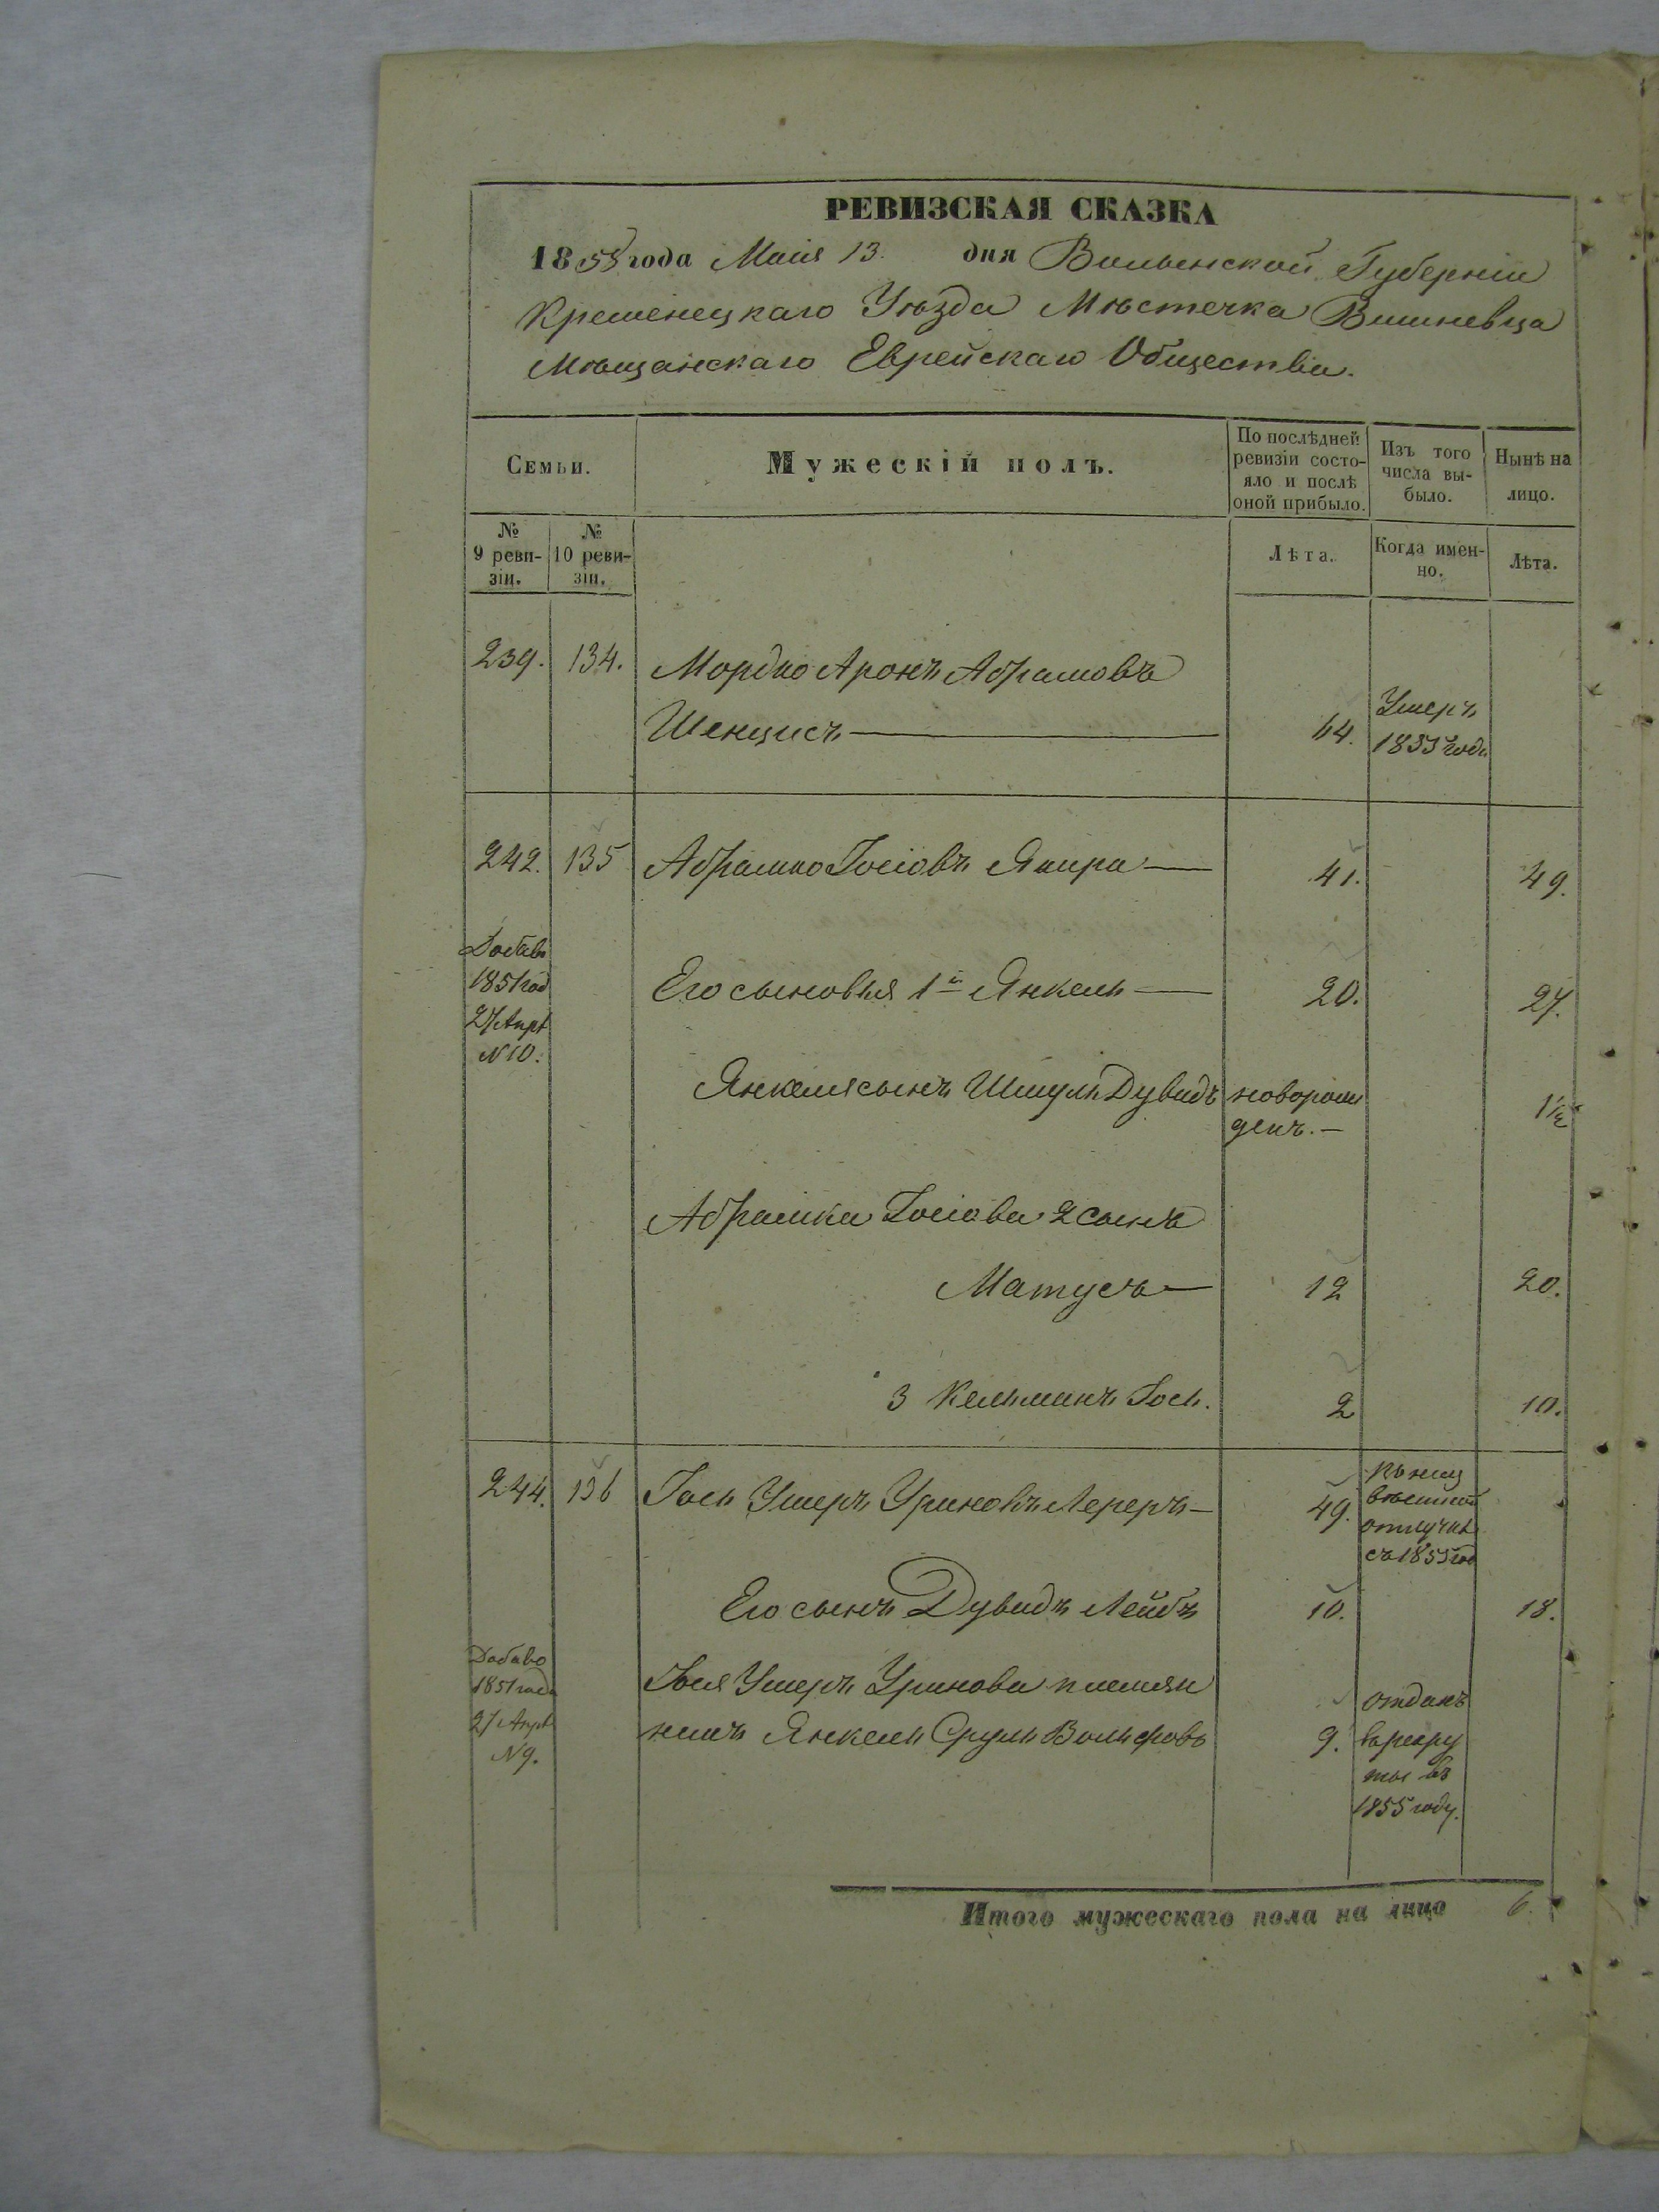 РЕВИЗСКАЯ СКАЗКА
1858 года Маія 13. дня Волынской Губерніи
Кременецкаго Уѣзда Мѣстечка Вишневца
Мѣщанскаго Еврейскаго Общества.
Семьи.
Мужескій полъ.
По послѣдней
ревизіи состо-
яло и послѣ
оной прибыло.
Изъ того
числа вы-
было.
Нынѣ на
лицо.
№
9 реви-
зіи.
№
10 реви-
зіи.
Лѣта.
Когда имен-
но.
Лѣта.
239. 134. Мордко Аронъ Абрамовъ
Шенцисъ 44. Умеръ
1855 года
242. 135 Абрамко Іосіовъ Якира 41. 49.
Добав
1851 год
27 Апрѣ
N 10.
Его сыновья 1й Янкель 20. 27.
Янкеля сынъ Шмуль Дувидъ новорож
денъ. 1½
Абрамка Іосіова 2 сынъ
Матусъ 12 20.
3 Кельманъ Іось. 2 10.
244. 136 Іось Ушеръ Уриновъ Лереръ 49.
отлучкѣ
съ 1855 год
Его сынъ Дувидъ Лейбъ 10. 18.
Добаво
1851 года
27 Апрѣ
N 9.
Іося Ушеръ Уринова племян
никъ Янкель Сруль Вольфовъ 9.
отданъ
в рекру
ты въ
1855 году.
Итого мужескаго пола на лицо 6.